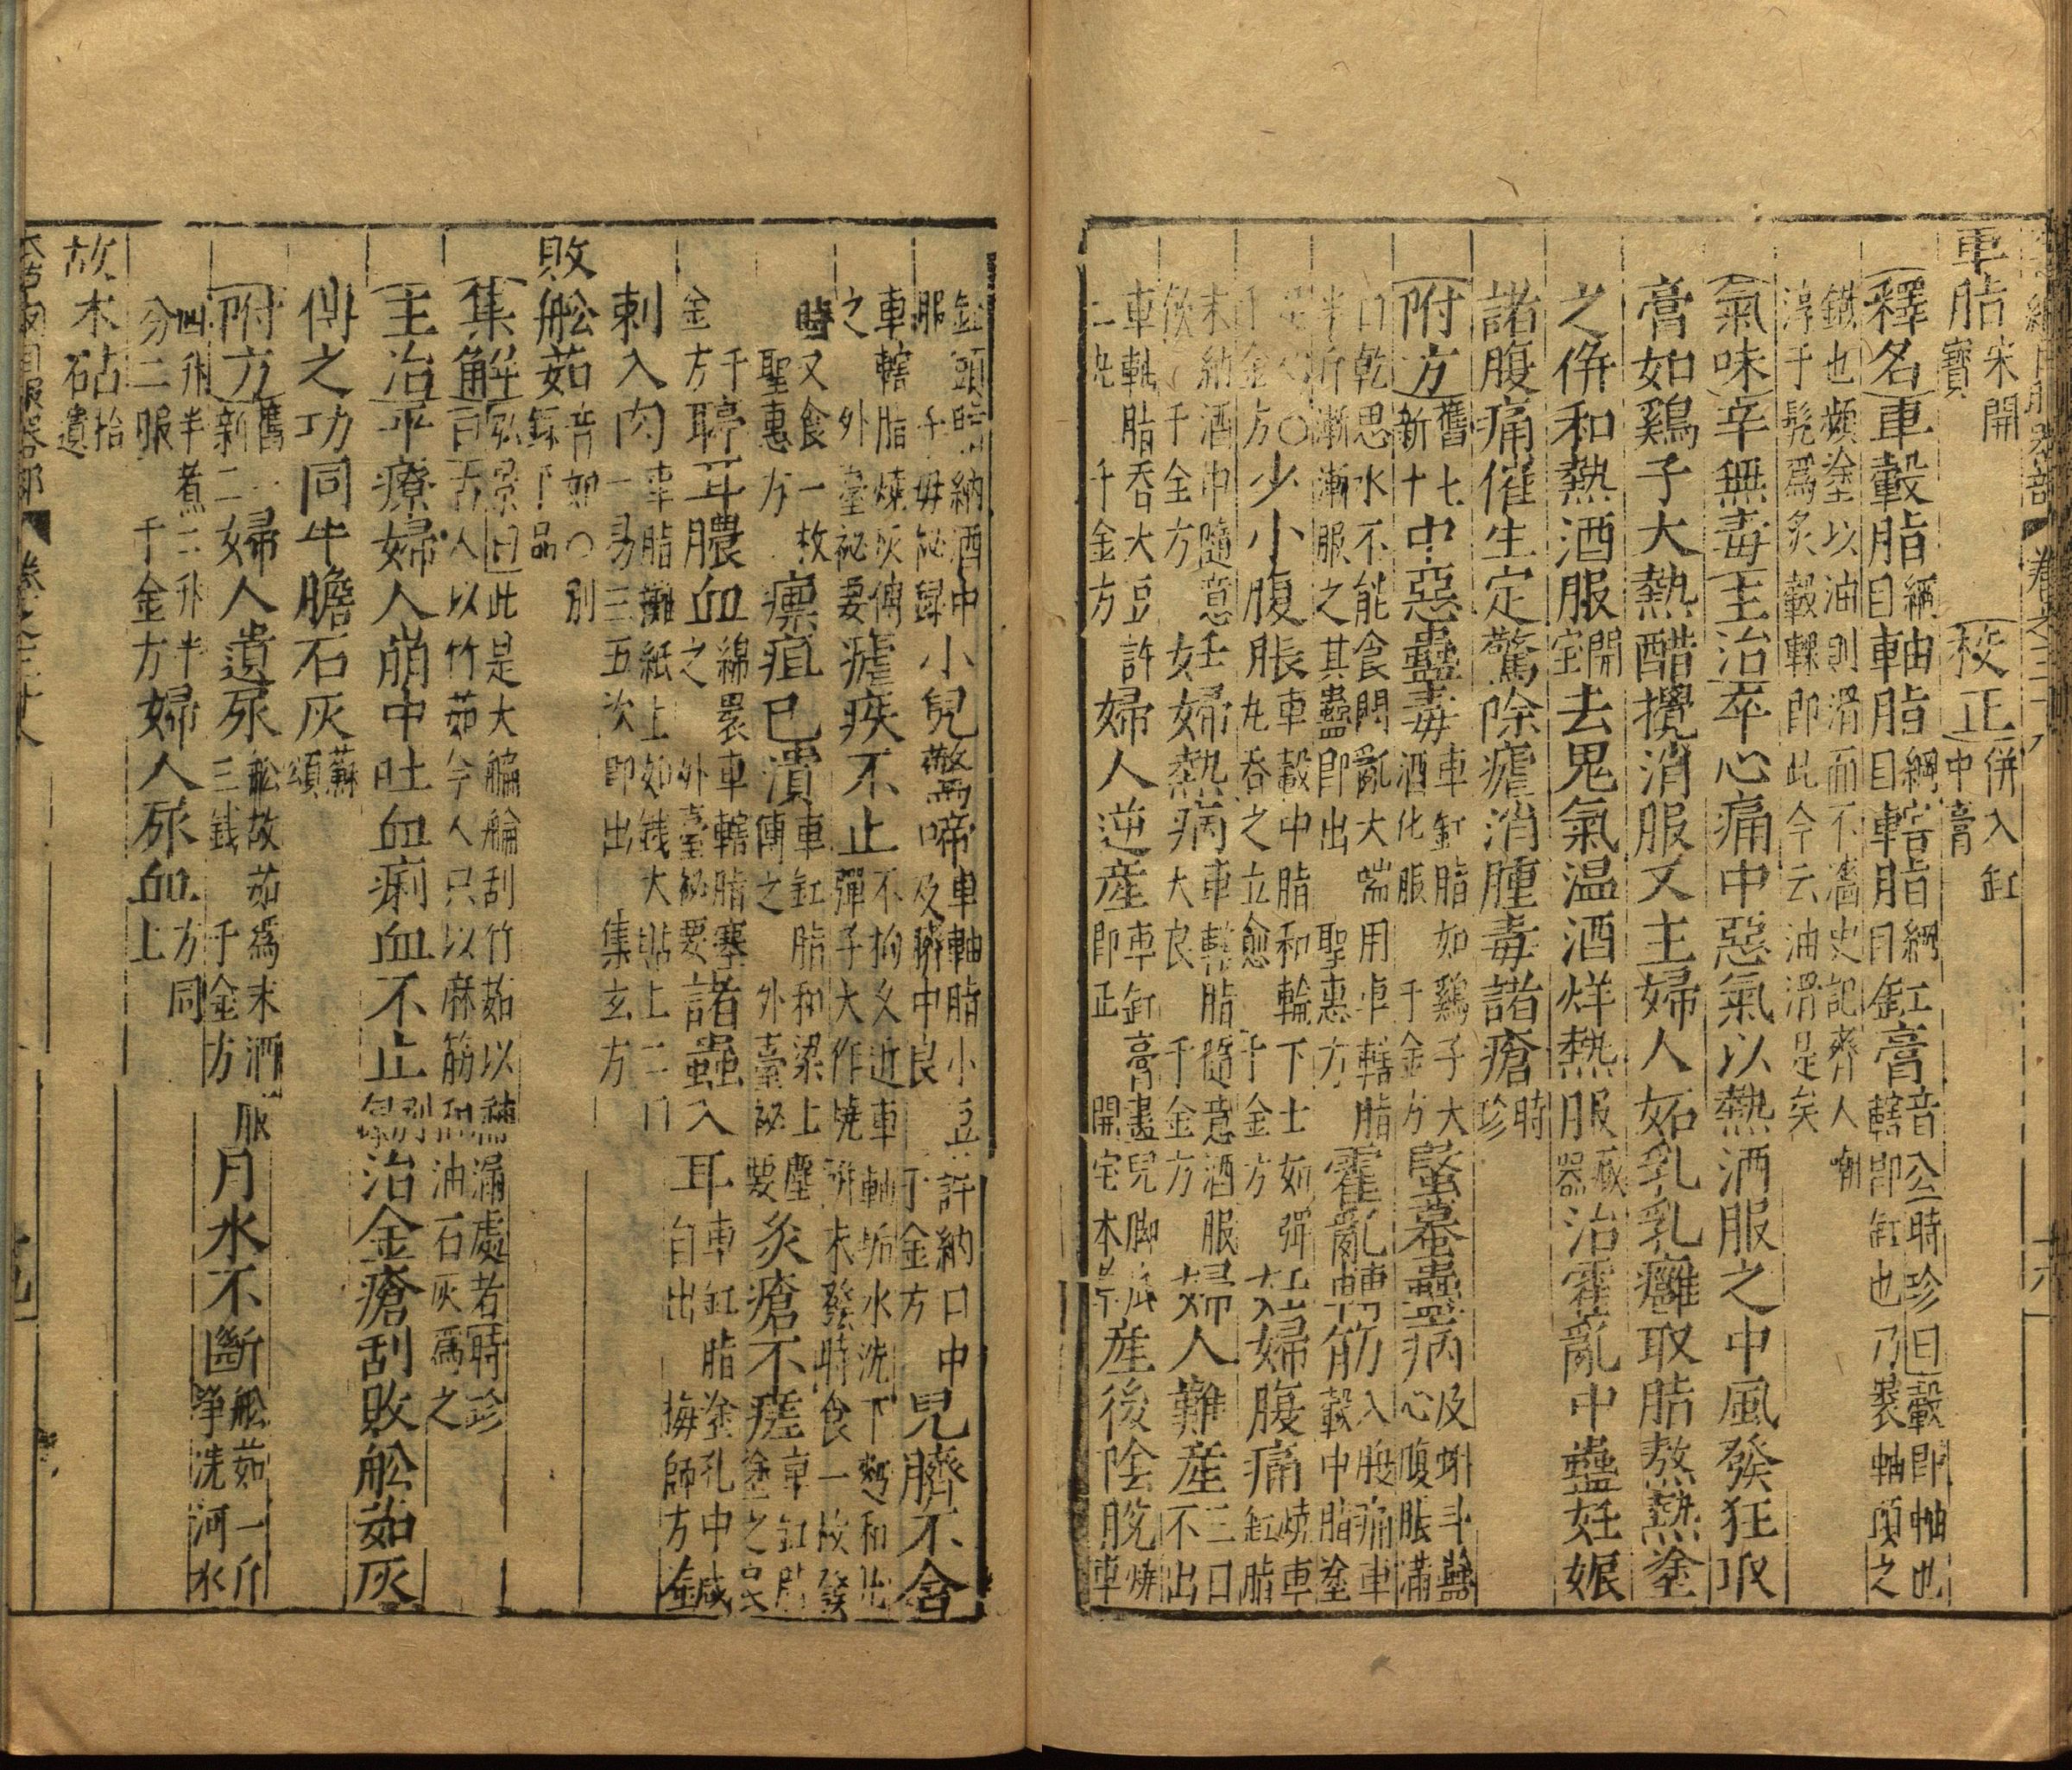 車脂宋開寶 校正併入缸中膏
釋名車轂脂綱目軸脂綱目轄脂綱目缸膏音公時珍曰轂即軸也轄即缸也乃裹軸頭之
鐵也頻塗以油則滑而不濇史記齊人嘲淳于髡爲炙轂輠即此今云油滑是矣
氣味辛無毒主治卒心痛中惡氣以熱酒服之中風發狂取
膏如鷄子大熱醋攪消服又主婦人妬乳乳癰取脂熬熱塗
之併和熱酒服開寶去鬼氣温酒烊熱服藏器治霍亂中蠱妊娠
諸腹痛催生定驚除瘧消腫毒諸瘡時珍
附方舊七新十中惡蠱毒車缸脂如鷄子大酒化服千金方螌蟇蠱病及蝌斗蠱心腹脹滿
口乾思水不能食悶亂大喘用車轄脂半斤漸漸服之其蠱即出聖惠方霍亂轉筋入腹痛車轂中脂塗
足心○千金方少小腹脹車轂中脂和輪下土如彈丸吞之立愈千金方妊婦腹痛燒車缸脂
末納酒中隨意飲千金方妊婦熱病車轄脂隨意酒服大良千金方婦人難産三日不出
車軌脂吞大豆許二丸千金方婦人逆産車缸膏畫兒脚底即正開宝本草産後陰脫燒車
缸頭脂納酒中服子母秘録小兒驚啼車軸脂小豆許納口中及臍中良千金方兒臍不合
車轄脂燒灰傅之外臺秘要瘧疾不止不拘久近車軸垢水洗下麪和丸彈子大作燒餅未發時食一枚發
時又食一枚聖惠方瘭疽已潰車缸脂和梁上塵傅之外臺秘要炙瘡不瘥車缸脂塗之良
千金方聤耳膿血綿裹車轄脂塞之外臺秘要諸蟲入耳車缸脂塗孔中自出梅師方鍼
刺入肉車脂攤紙上如錢大貼上二日一易三五次即出集玄方
敗舩茹音如○别録下品
集解弘景曰此是大艑䑳刮竹茹以補漏處者時珍曰古人以竹茹今人只以麻筋和油石灰爲之
主治平療婦人崩中吐血痢血不止别録治金瘡刮敗舩茹灰
傅之功同牛膽石灰蘇頌
附方舊一新二婦人遺尿舩故茹爲末酒服三錢千金方月水不斷舩茹一斤净洗河水
四升半煮二升半分二服千金方婦人尿血方同上
故木砧拾遺